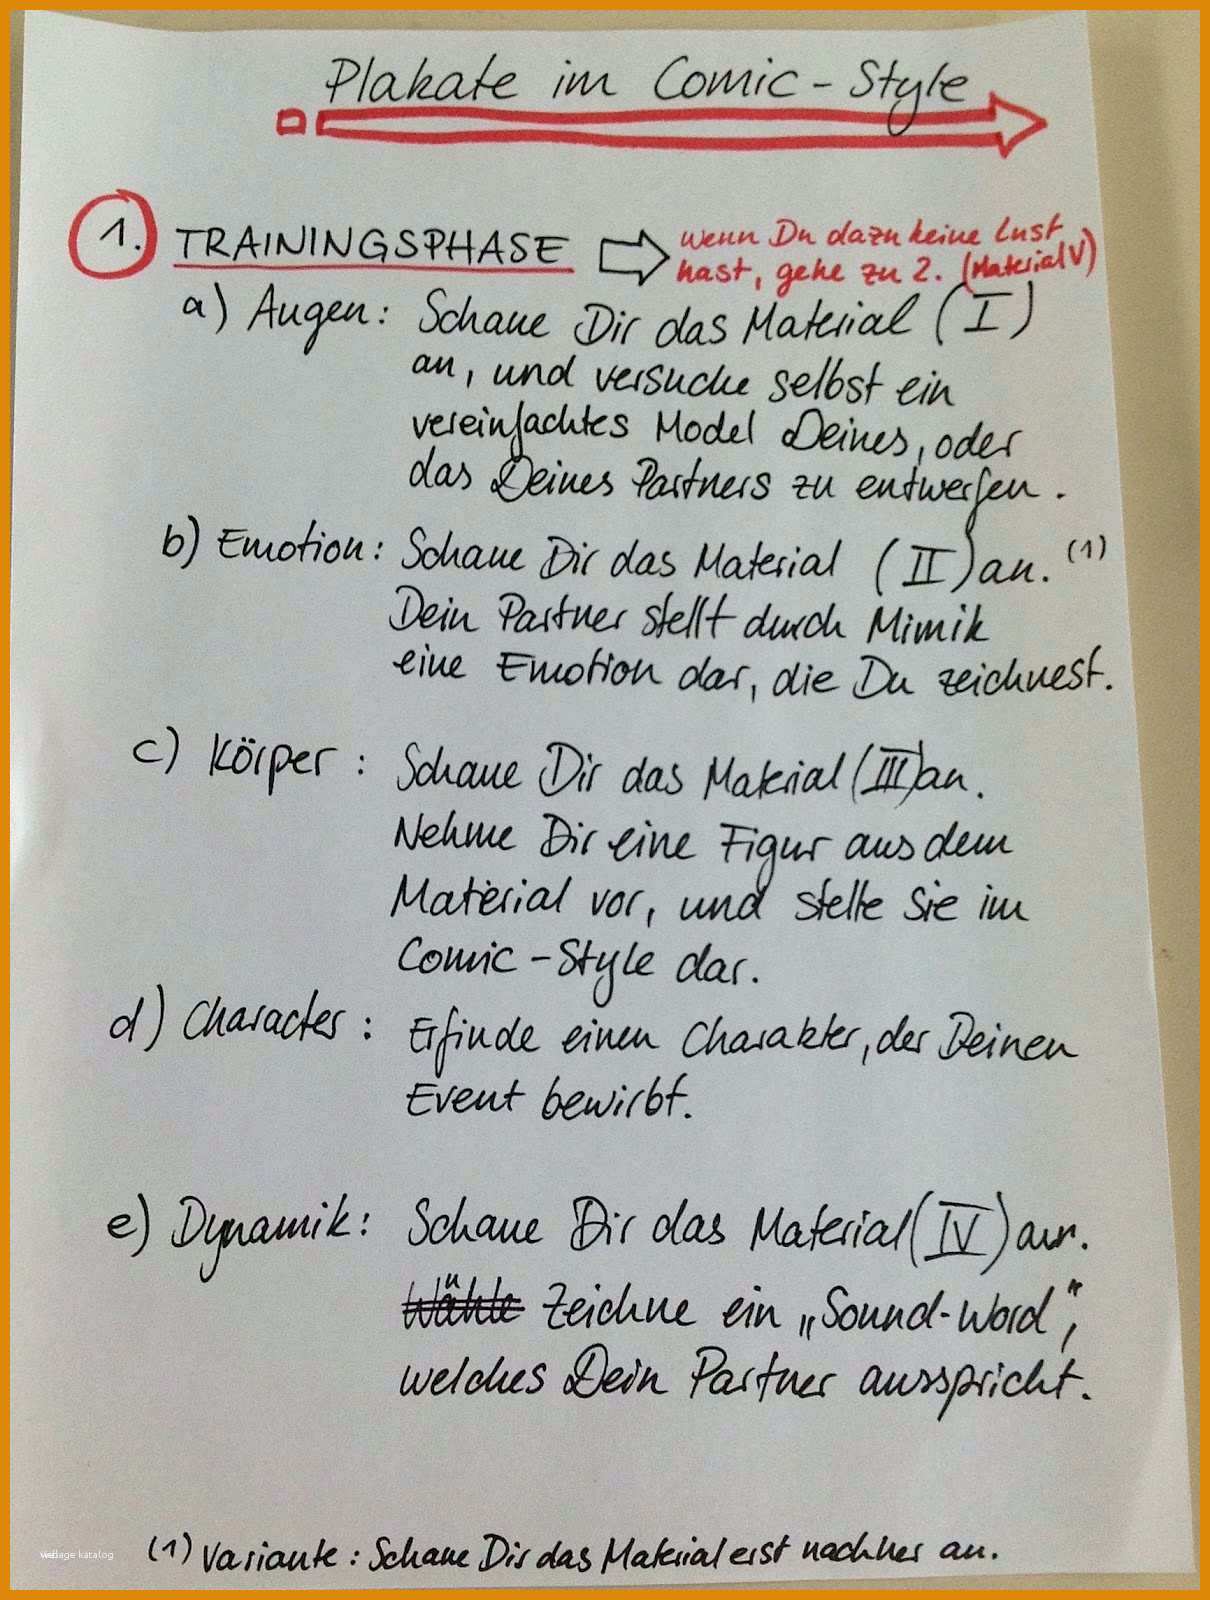 Plakate im Comic-Style
1. TRAININGSPHASE
wenn Du dazu keine Lust
hast, gehe zu 2. (Material V)
a) Augen: Schaue Dir das Material (I)
an, und versuche selbst ein
vereinfachtes Model Deines, oder
das Deines Partners zu entwerfen.
b) Emotion: Schaue Dir das Material (II) an. (1)
Dein Partner stellt durch Mimik
eine Emotion dar, die Du zeichnest.
c) Körper: Schaue Dir das Material (III) an.
Nehme Dir eine Figur aus dem
Material vor, und stelle Sie im
Comic-Style dar.
d) Character: Erfinde einen Charakter, der Deinen
Event bewirbt.
e) Dynamik: Schaue Dir das Material (IV) an.
Wähle Zeichne ein „Sound-Word",
welches Dein Partner ausspricht.
(1) Variante: Schaue Dir das Material erst nachher an.
katalog